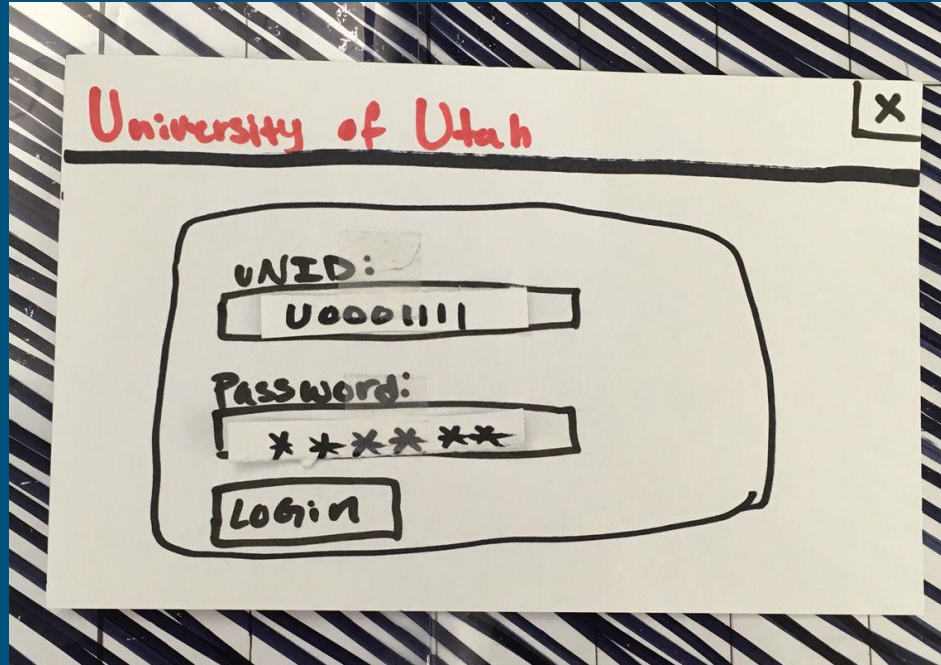 University of Utah
X
uNID:
U0001111
Password:
******
LoGin